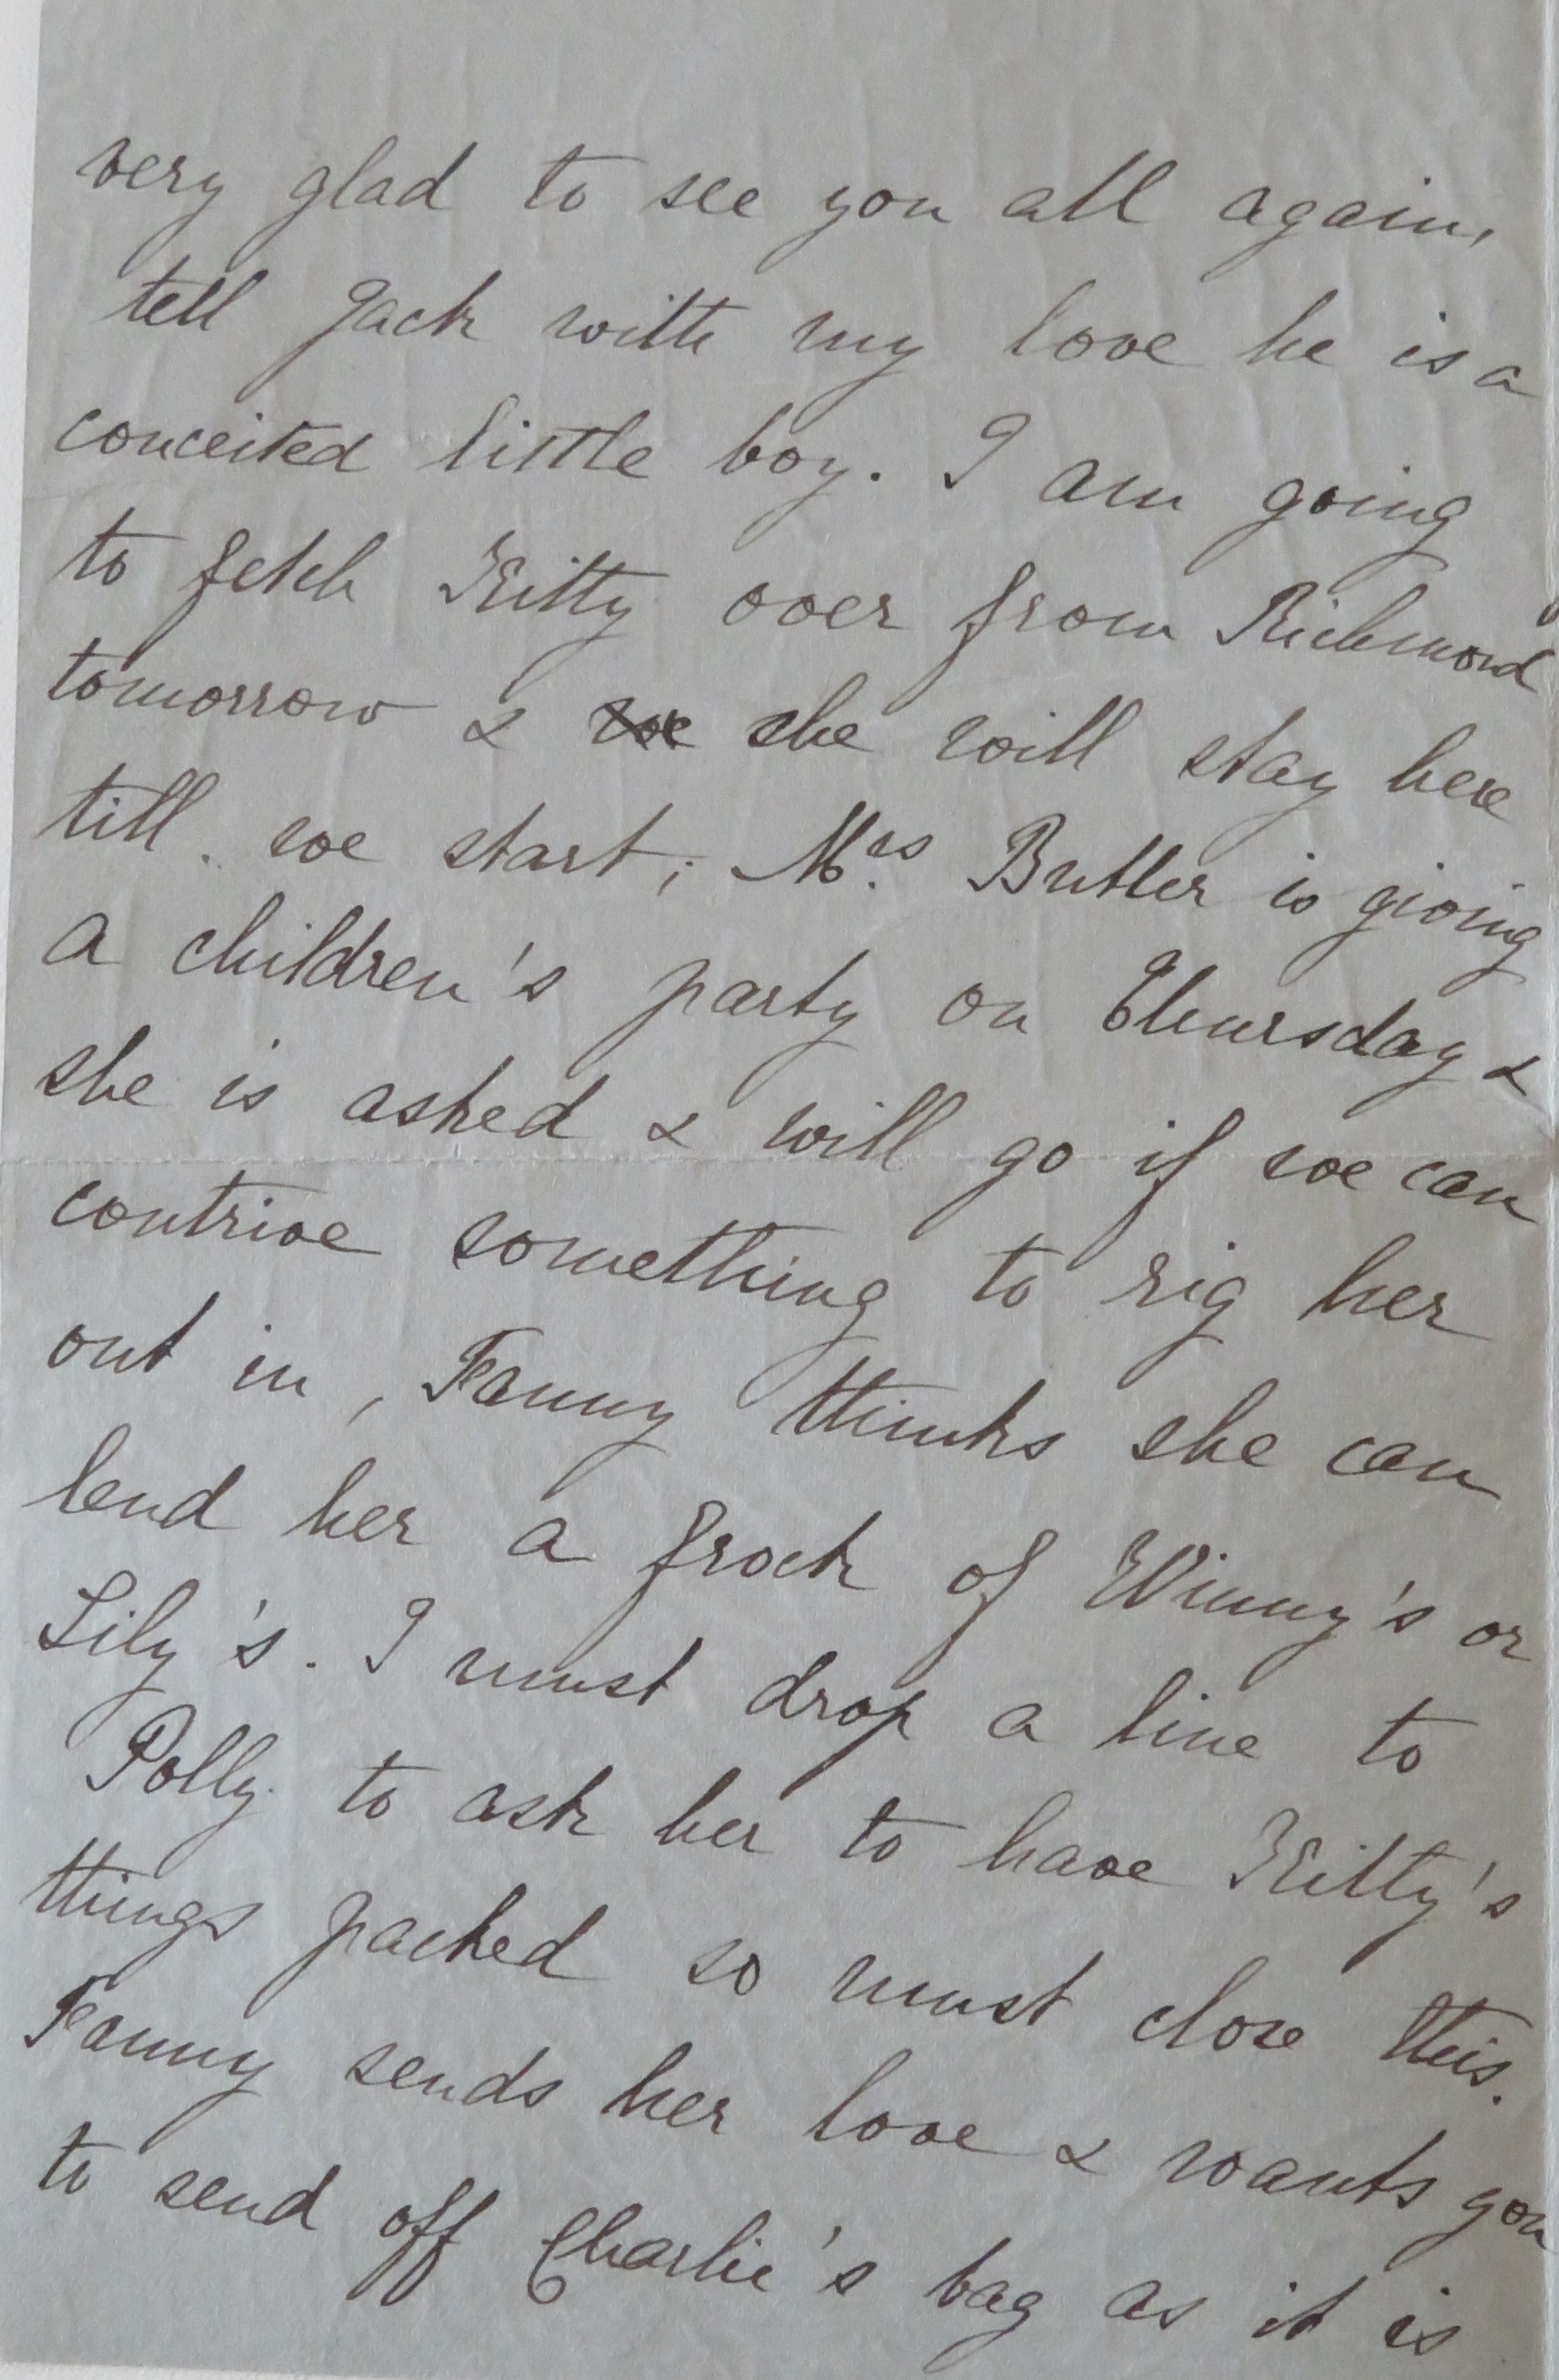 very glad to see you all again,
tell Jack with my love he is a
conceited little boy. I am going
to fetch Kitty over from Richmond
tomorrow & we she will stay here
till we start; Mrs Butler is giving
a children's party on Thursday &
she is asked & will go if we can
contrive something to rig her
out in, Fanny thinks she can
lend her a frock of Winny's or
Lily's. I must drop a line to
Polly to ask her to have Kitty's
things packed so must close this.
Fanny sends her love & wants you
to send off Charlie's bag as it is